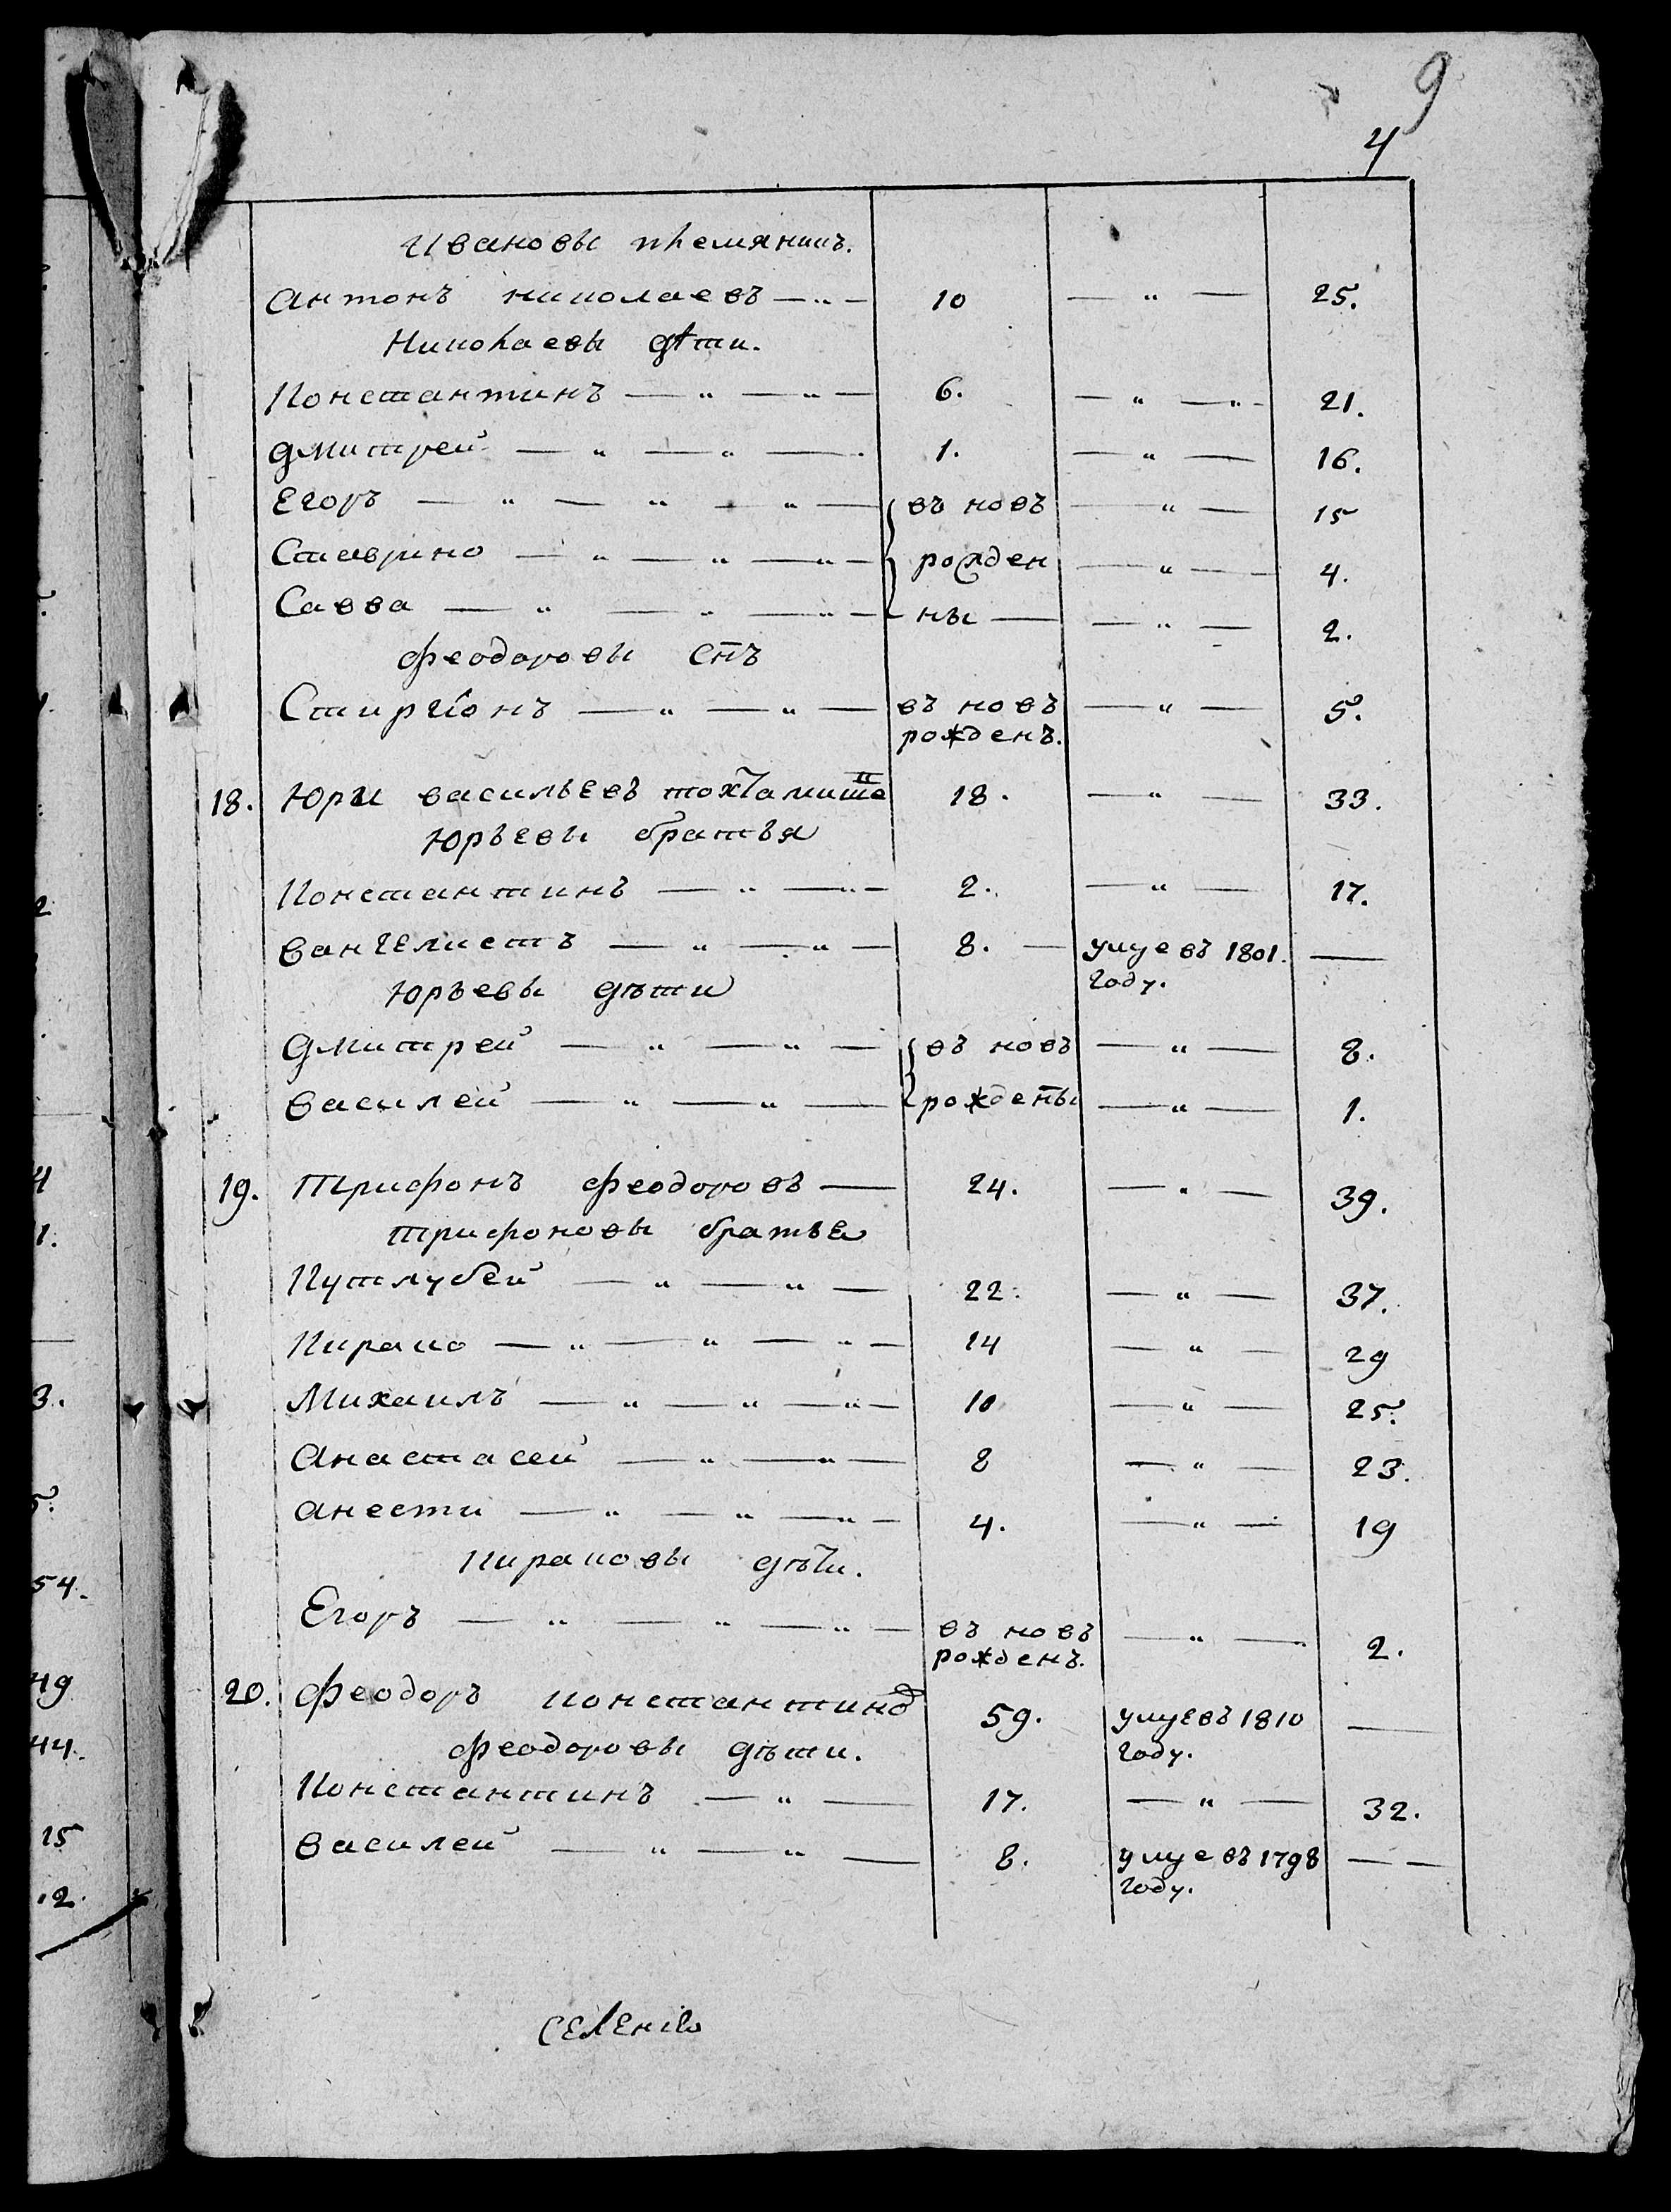 9
4
Ивановы племяникъ.
Антонъ николаевъ — „ — 10 — „ — 25.
Николаевы дѣти.
Константинъ — „ — „ — 6. — „ — „ - 21.
Дмитрей — „ — „ — 1. — „ — 16.
Егоръ — „ — „ — „ — въ новъ — „ — 15
Ставрино — „ — „ — „ — рожден — „ — 4.
Савва — „ — „ — „ — ны — — „ — 2.
Феодоровы снъ
Стиргіонъ — „ — „ — въ новъ — „ — 5.
рожденъ.
18. Юрги васильевъ 18. — „ — 33.
Юрьевы братья
Константинъ — „ — „ — 2. — „ — 17.
Вангелистъ — „ — „ — 8. — умре въ 1801. —
году.
Юрьевы дѣти
Дмитрей — „ — „ — въ новъ — „ — 8.
Василей — „ — „ — рождены — „ — 1.
19. Трифонъ Феодоровъ — 24. — „ — 39.
Трифоновы братья
Кутлубей — „ — „ — 22. — „ — 37.
Кирако — „ — „ — „ — 14 — „ — 29
Михаилъ — „ — „ — „ — 10 — „ — 25.
Анастасей — „ — „ — 8 — „ — 23.
Анести — „ — „ — „ — 4. — „ — 19
Кираковы дѣти.
Егоръ — „ — „ — „ — въ новъ — „ — 2.
рожденъ.
20. Феодоръ константиновъ 59. умре въ 1810 —
Феодоровы дѣти. году.
Константинъ — „ — 17. — „ — 32.
Василей — „ — „ — 8. умре въ 1798 — —
году.
селеніе
2
4
1.
3.
5.
54.
49
44.
15
.2.